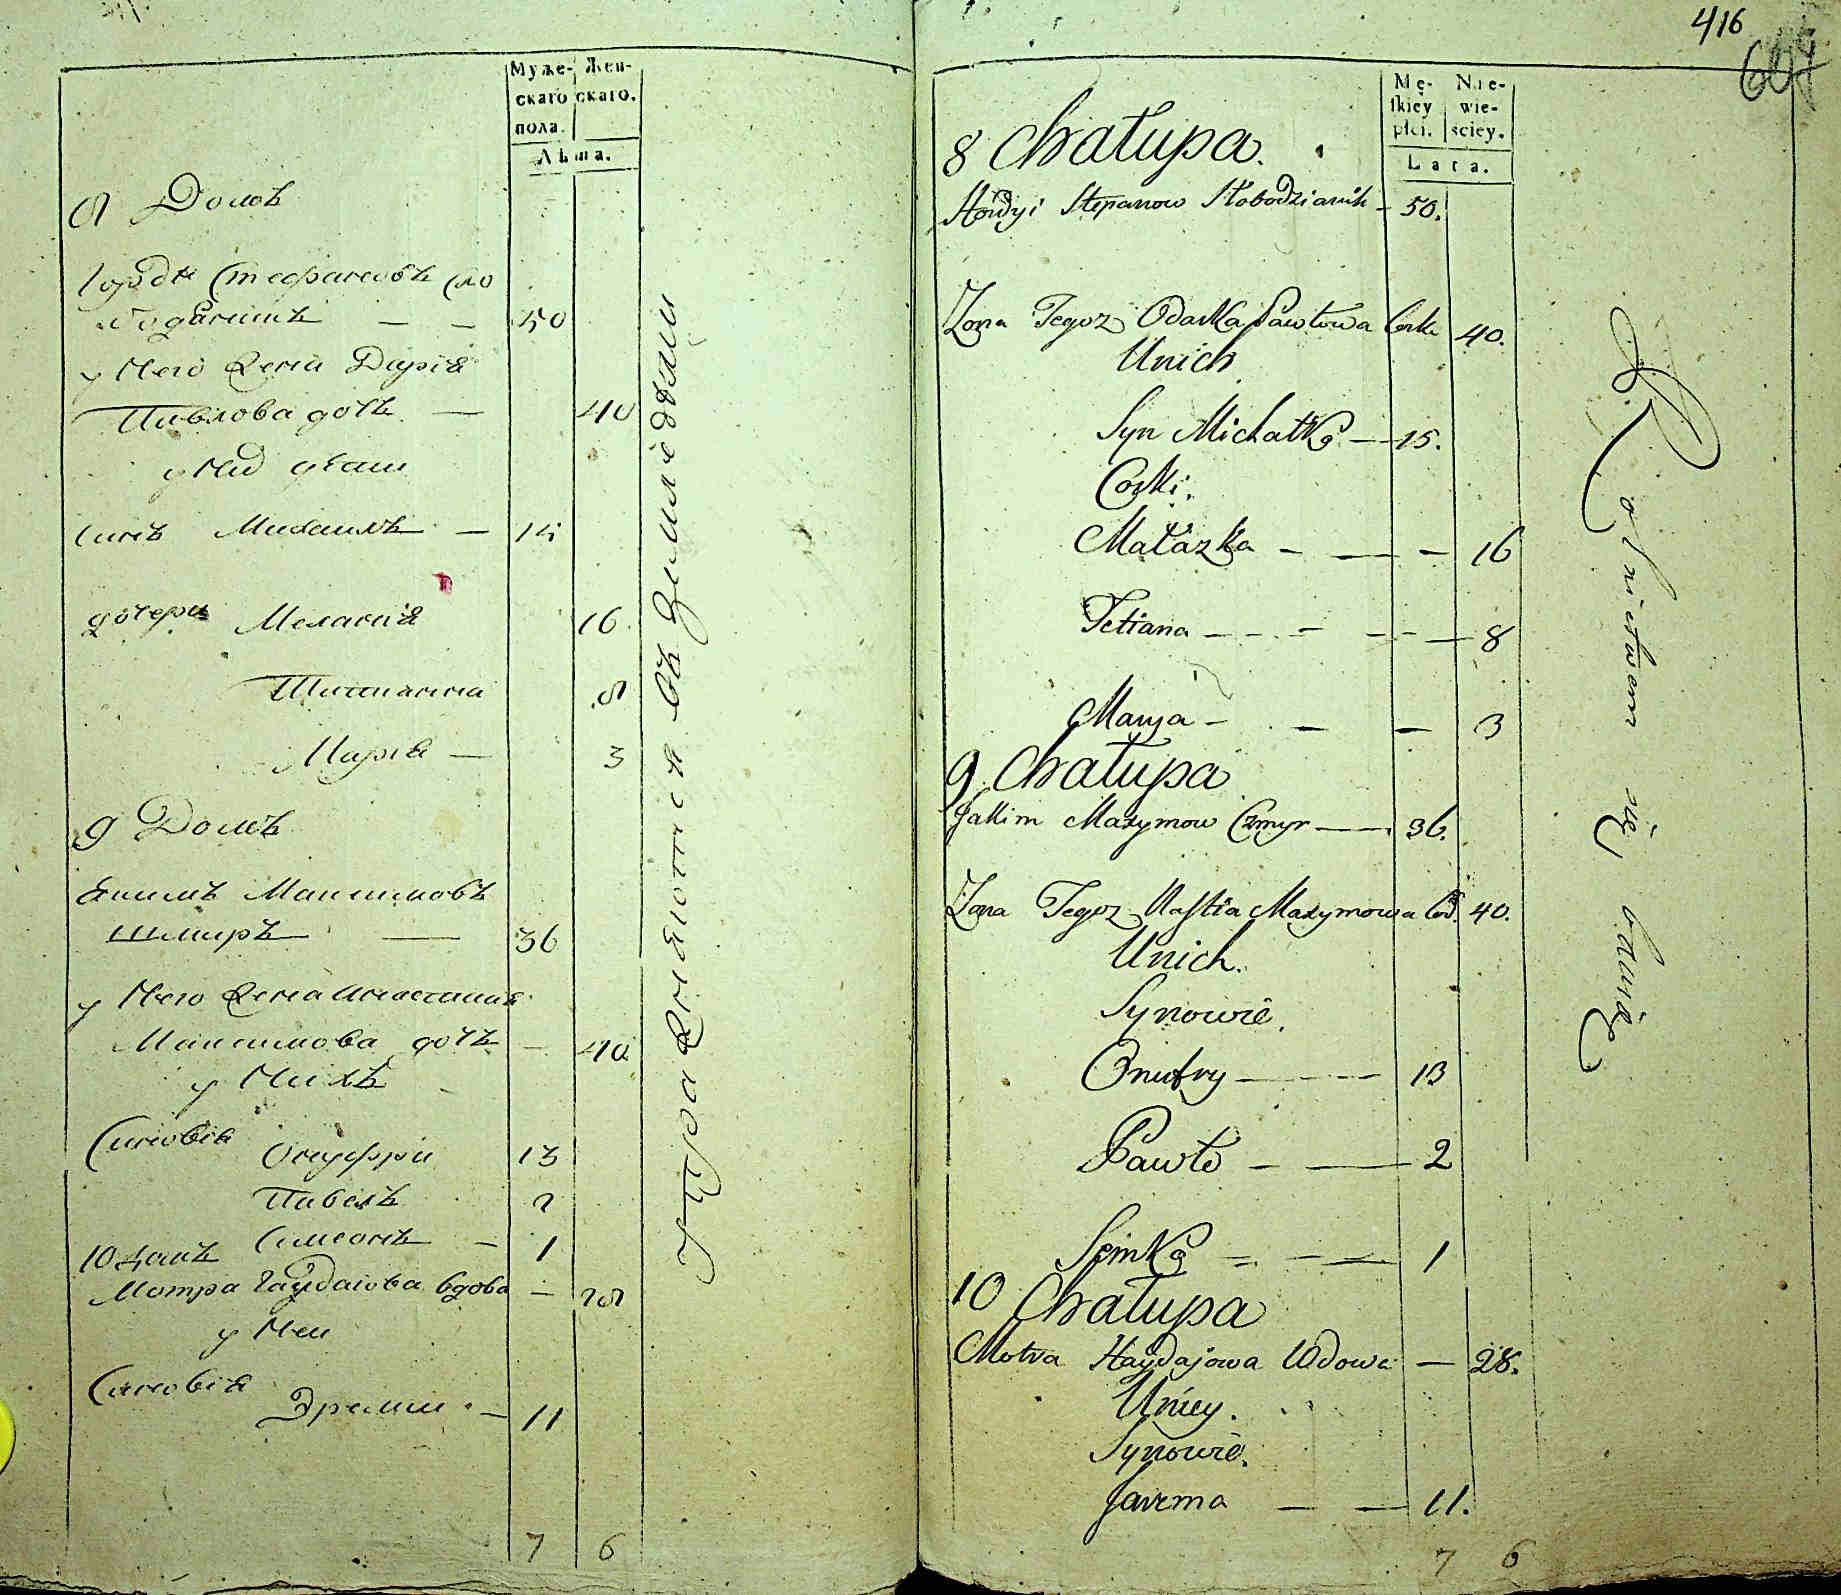 Муже-
скаго
пола.
Жен-
скаго.
Лѣта.
8 Домъ
Горди Стефановъ Сло
бодяникъ — — 50
у него жена Дарiя
Павлова дочь — 40
у них дѣти
Сынъ Михаилъ — 15
дочери Меланiя 16
Татiанна 8
Марiя — 3
9 Домъ
Якимъ Максимовъ
Шмиръ — 36
у него жена Анастасия
Максимова дочь — 40
у нихъ
Сыновья Онуфрiи 13
Павелъ 2
Симеонъ — 1
10 Домъ
Мотра Гайдаiова вдова — 28
у неи
Сыновья
Эремии — 11
7 6
Упражняются въ Земледѣлiи
416
607
Mę-
skiey
płci.
Nie-
wie-
sciey.
Lata.
8 Chałupa.
Hordyi Stepanow Słobodzianik — 50.
Zona Tegoz Odarka Pawłowa Corka 40.
Unich
Syn Michałko — 15.
Corki.
Małazka — — — 16
Tetiana — — — 8
Marya — — — 3
9 Chałupa
Jakim Maxymow Czmyr — 36.
Zona Tegoz Nastia Maxymowa Cor. 40.
Unich.
Synowie.
Onufry — 13
Pawło — — 2
Semko — — 1
10 Chałupa
Motra Haydajowa Wdowa — 28.
Uniey.
Synowie.
Jarema — — 11.
7 6
Rolnictwem się bawią